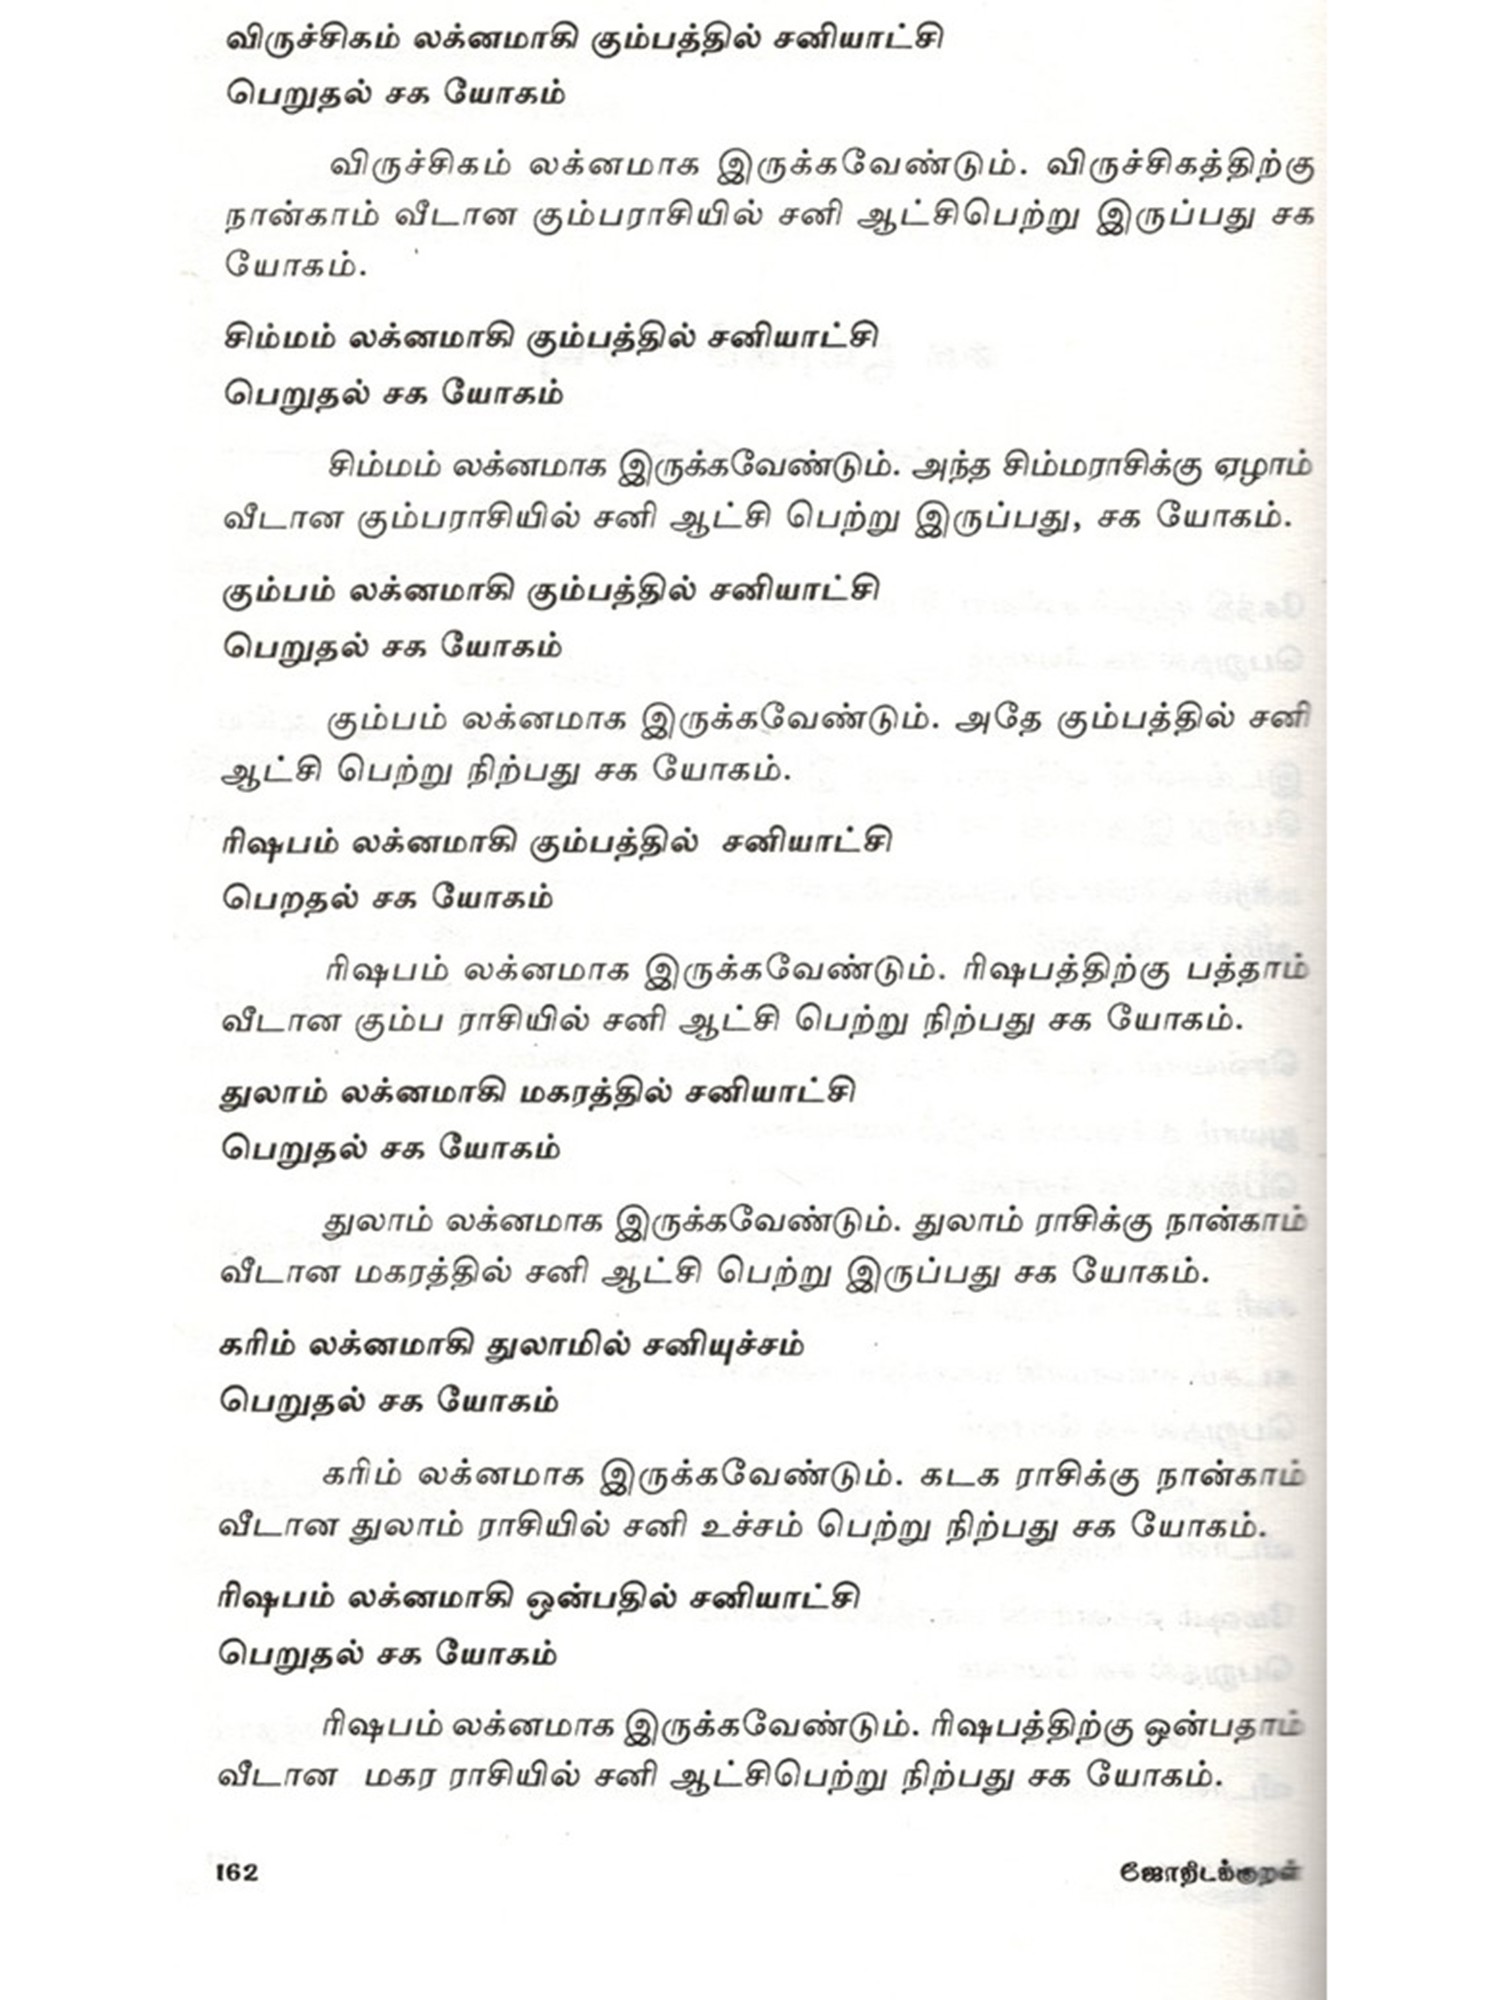 விருச்சிகம் லக்னமாகி கும்பத்தில் சனியாட்சி
பெறுதல் சக யோகம்
விருச்சிகம் லக்னமாக இருக்கவேண்டும். விருச்சிகத்திற்கு
நான்காம் வீடான கும்பராசியில் சனி ஆட்சிபெற்று இருப்பது சக
யோகம்.
சிம்மம் லக்னமாகி கும்பத்தில் சனியாட்சி
பெறுதல் சக யோகம்
சிம்மம் லக்னமாக இருக்கவேண்டும். அந்த சிம்மராசிக்கு ஏழாம்
வீடான கும்பராசியில் சனி ஆட்சி பெற்று இருப்பது, சக யோகம்.
கும்பம் லக்னமாகி கும்பத்தில் சனியாட்சி
பெறுதல் சக யோகம்
கும்பம் லக்னமாக இருக்கவேண்டும். அதே கும்பத்தில் சனி
ஆட்சி பெற்று நிற்பது சக யோகம்.
ரிஷபம் லக்னமாகி கும்பத்தில் சனியாட்சி
பெறதல் சக யோகம்
ரிஷபம் லக்னமாக இருக்கவேண்டும். ரிஷபத்திற்கு பத்தாம்
வீடான கும்ப ராசியில் சனி ஆட்சி பெற்று நிற்பது சக யோகம்.
துலாம் லக்னமாகி மகரத்தில் சனியாட்சி
பெறுதல் சக யோகம்
துலாம் லக்னமாக இருக்கவேண்டும். துலாம் ராசிக்கு நான்காம்
வீடான மகரத்தில் சனி ஆட்சி பெற்று இருப்பது சக யோகம்.
கரிம் லக்னமாகி துலாமில் சனியுச்சம்
பெறுதல் சக யோகம்
கரிம் லக்னமாக இருக்கவேண்டும். கடக ராசிக்கு நான்காம்
வீடான துலாம் ராசியில் சனி உச்சம் பெற்று நிற்பது சக யோகம்.
ரிஷபம் லக்னமாகி ஒன்பதில் சனியாட்சி
பெறுதல் சக யோகம்
ரிஷபம் லக்னமாக இருக்கவேண்டும். ரிஷபத்திற்கு ஒன்பதாம்
வீடான மகர ராசியில் சனி ஆட்சிபெற்று நிற்பது சக யோகம்.
162 ஜோதிடக்குறள்